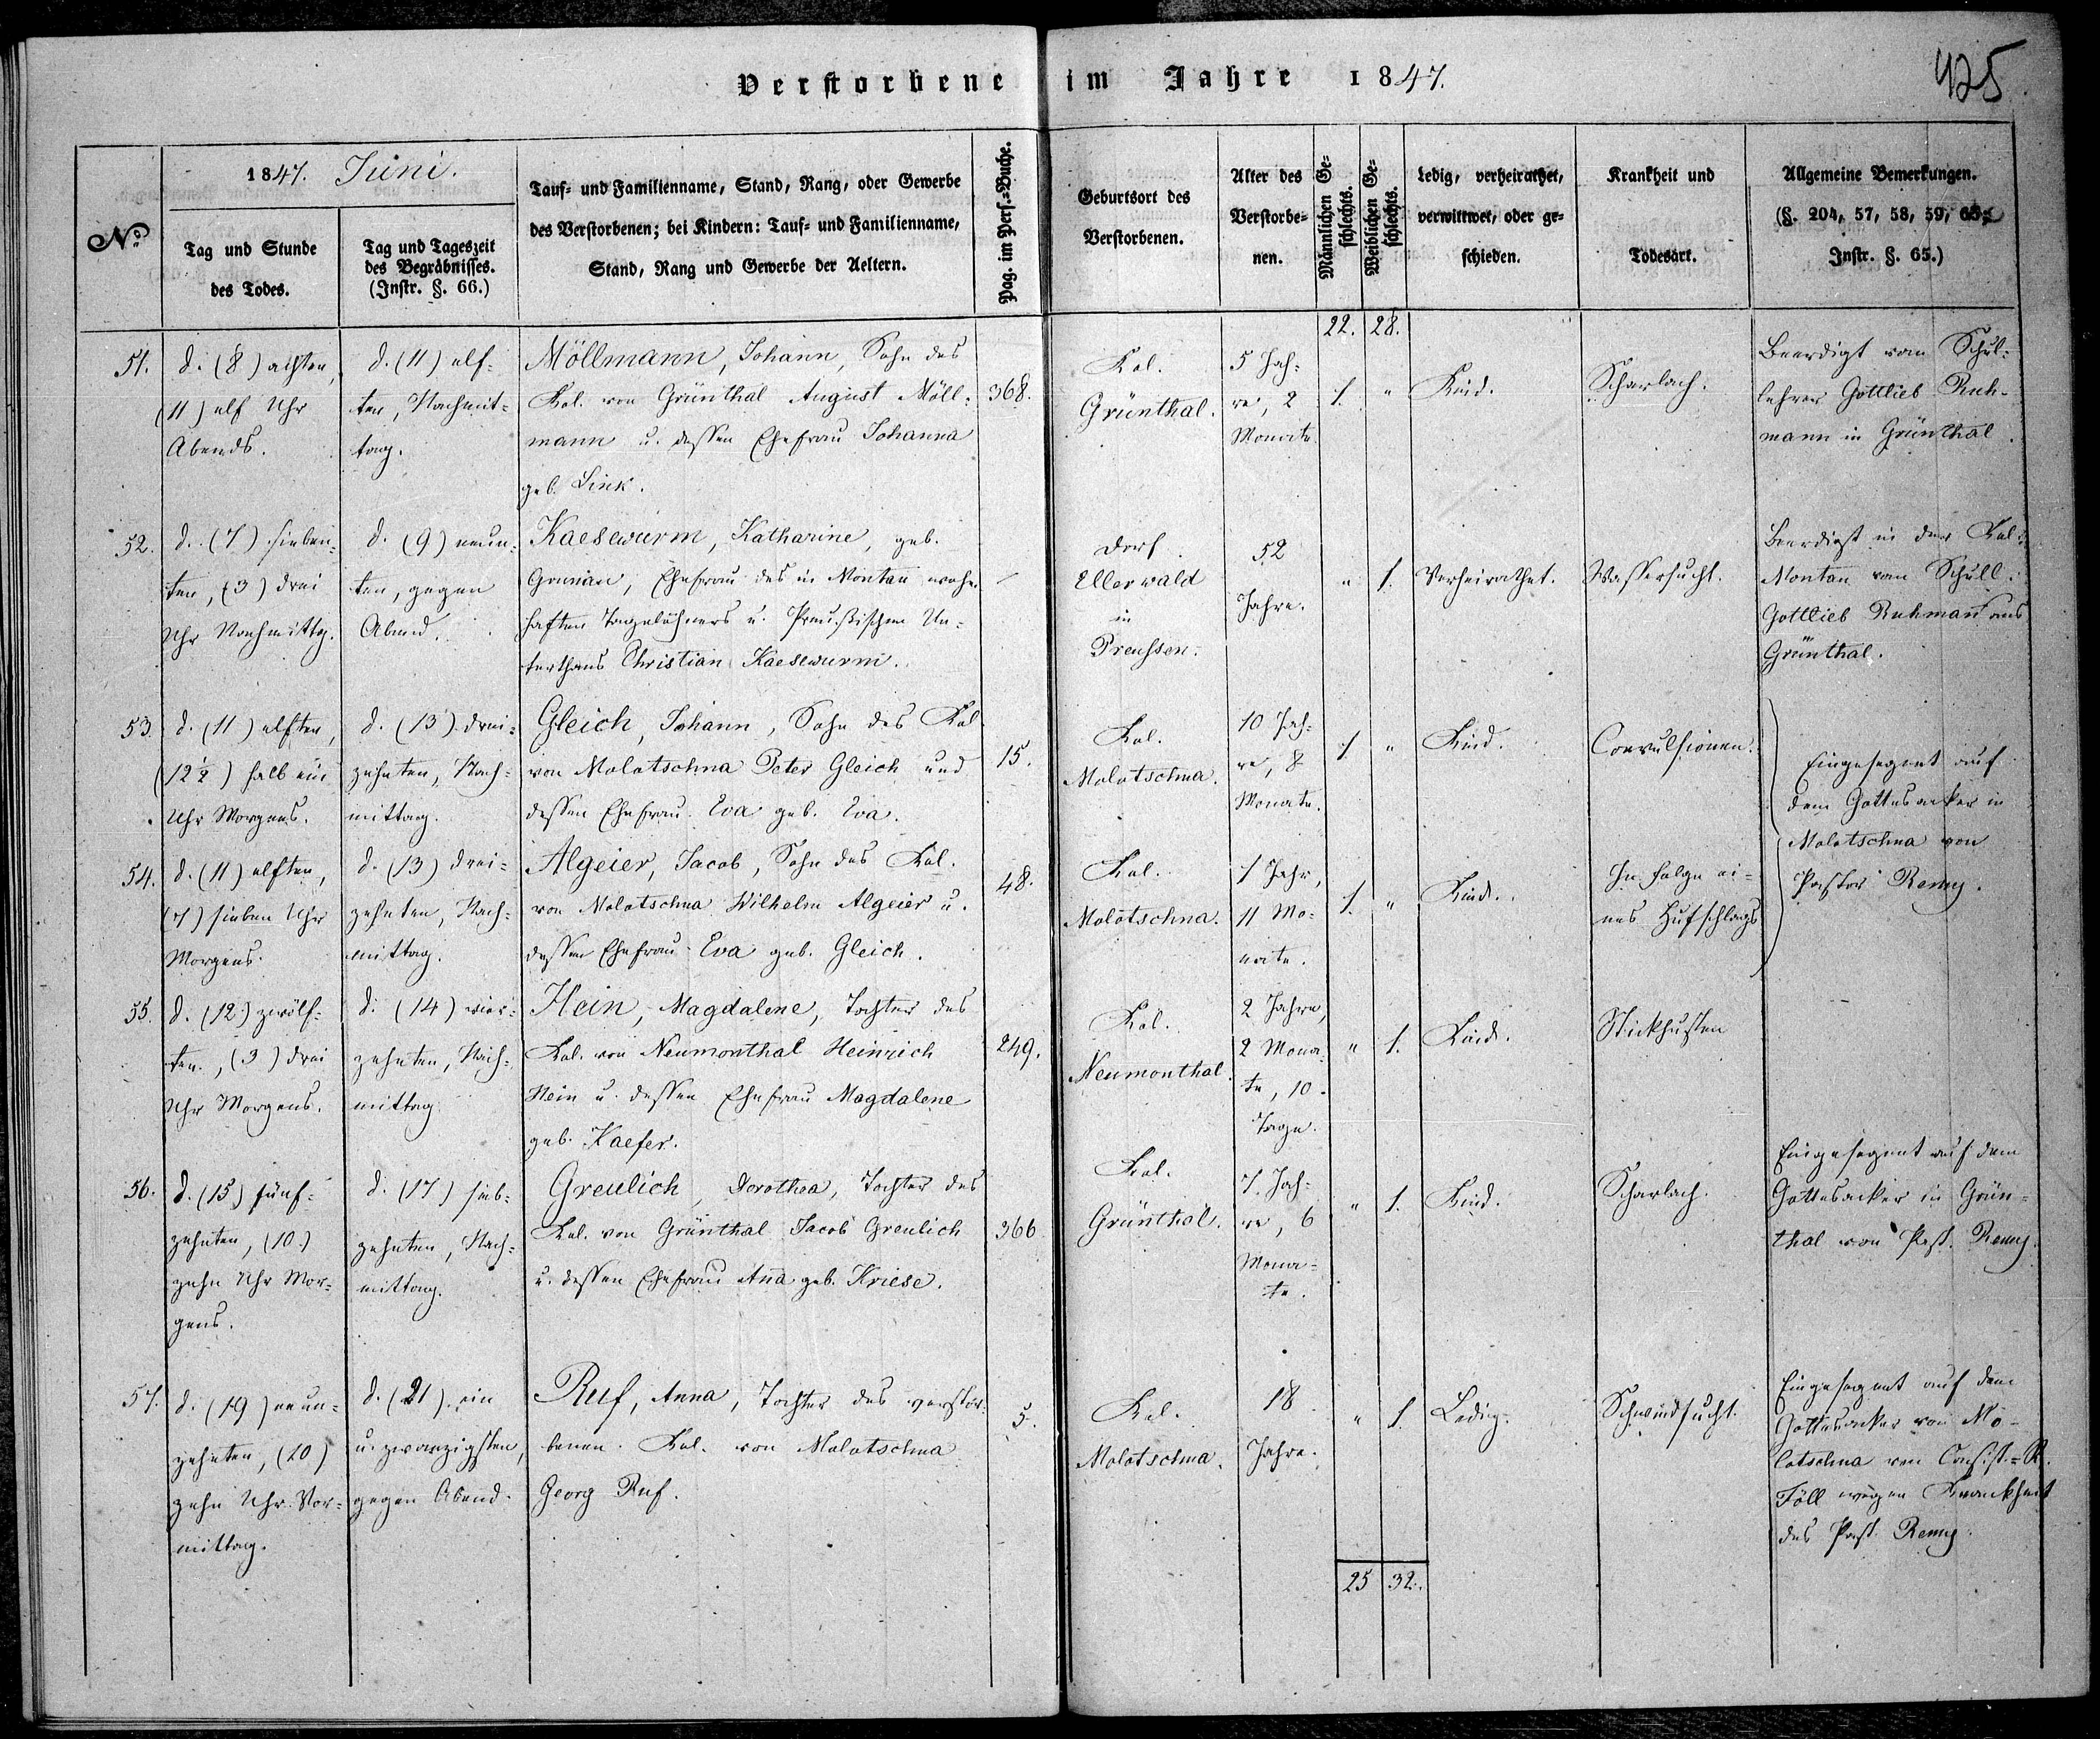 Verstorbene im Jahre 1847.
425
No
1847. Juni.
Tag und Stunde
des Todes.
Tag und Tageszeit
des Begräbnisses.
(Instr. §. 66.)
Tauf- und Familienname, Stand, Rang, oder Gewerbe
des Verstorbenen; bei Kindern: Tauf- und Familienname,
Stand, Rang und Gewerbe der Aeltern.
Pag. im Pers.-Buche.
Geburtsort des
Verstorbenen.
Alter des
Verstorbe-
nen.
Männlichen Ge-
schlechts.
Weiblichen Ge-
schlechts.
Ledig, verheirathet,
verwittwet, oder ge-
schieden.
Krankheit und
Todesart.
Allgemeine Bemerkungen.
(§. 204, 57, 58, 59,
Instr. §. 65.)
22. 28.
51.
d. (8) achten,
(11) elf Uhr
Abends.
d. (11) elf-
ten, Nachmit-
tag.
Möllmann, Johann, Sohn des
Kol. von Grünthal August Möll-
mann u. dessen Ehefrau Johanna
geb. Link.
368.
Kol.
Grünthal.
5 Jah-
re, 2
Monate.
1. "
Kind.
Scharlach.
Beerdigt vom Schul-
lehrer Gottlieb Ruh-
mann in Grünthal.
52.
d. (7) sieben-
ten, (3) drei
Uhr Nachmittg.
d. (9) neun-
ten, gegen
Abend.
Kaesewurm, Katharine, geb.
Ehefrau des in Montau wohn-
haften Tagelöhners u. Preußischen Un-
terthans Christian Kaesewurm.
Dorf
Ellerwald
in
Preussen.
52
Jahre.
" 1.
Verheirathet.
Wassersucht.
Beerdigt in der Kol.
Montau vom Schull.
Gottlieb Ruhmann aus
Grünthal.
53.
d. (11) elften,
(12 1/2) halb ein
Uhr Morgens.
d. (13) drei-
zehnten, Nach-
mittag.
Gleich, Johann, Sohn des Kol.
von Molotschna Peter Gleich und
dessen Ehefrau Eva geb. Eva.
15.
Kol.
Molotschna.
10 Jah-
re, 8
Monate.
1. "
Kind.
Convulsionen.
Eingesegnet auf
dem Gottesacker in
Molotschna von
Pastor Remy.
54.
d. (11) elften,
(7) sieben Uhr
Morgens.
d. (13) drei-
zehnten, Nach-
mittag.
Algeier, Jacob, Sohn des Kol.
von Molotschna Wilhelm Algeier u.
dessen Ehefrau Eva geb. Gleich.
48.
Kol.
Molotschna.
1 Jahr,
11 Mo-
nate.
1. "
Kind.
In Folge ei-
nes Hufschlags
55.
d. (12) zwölf-
ten, (3) drei
Uhr Morgens.
d. (14) vier-
zehnten, Nach-
mittag.
Hein, Magdalene, Tochter des
Kol. von Neumonthal Heinrich
Hein u. dessen Ehefrau Magdalene
geb. Kaefer.
249.
Kol.
Neumonthal.
2 Jahre,
2 Mona-
te, 10
Tage.
" 1.
Kind.
Stickhusten
56.
d. (15) fünf-
zehnten, (10)
zehn Uhr Mor-
gens.
d. (17) sieb-
zehnten, Nach-
mittag.
Greulich, Dorothea, Tochter des
Kol. von Grünthal Jacob Greulich
u. dessen Ehefrau Anna geb. Kriese.
366
Kol.
Grünthal.
7 Jah-
re, 6
Mona-
te.
" 1.
Kind.
Scharlach.
Eingesegnet auf dem
Gottesacker in Grün-
thal von Past. Remy.
57.
d. (19) neun-
zehnten, (10)
zehn Uhr Vor-
mittag.
d. (21) ein
u. zwanzigsten,
gegen Abend.
Ruf, Anna, Tochter des verstor-
benen Kol. von Molotschna
Georg Ruf.
5.
Kol.
Molotschna.
18
Jahre.
" 1.
Ledig.
Schwindsucht.
Eingesegnet auf dem
Gottesacker von Mo-
lotschna von Consist.-R.
Föll wegen Krankheit
des Past. Remy.
25 32.